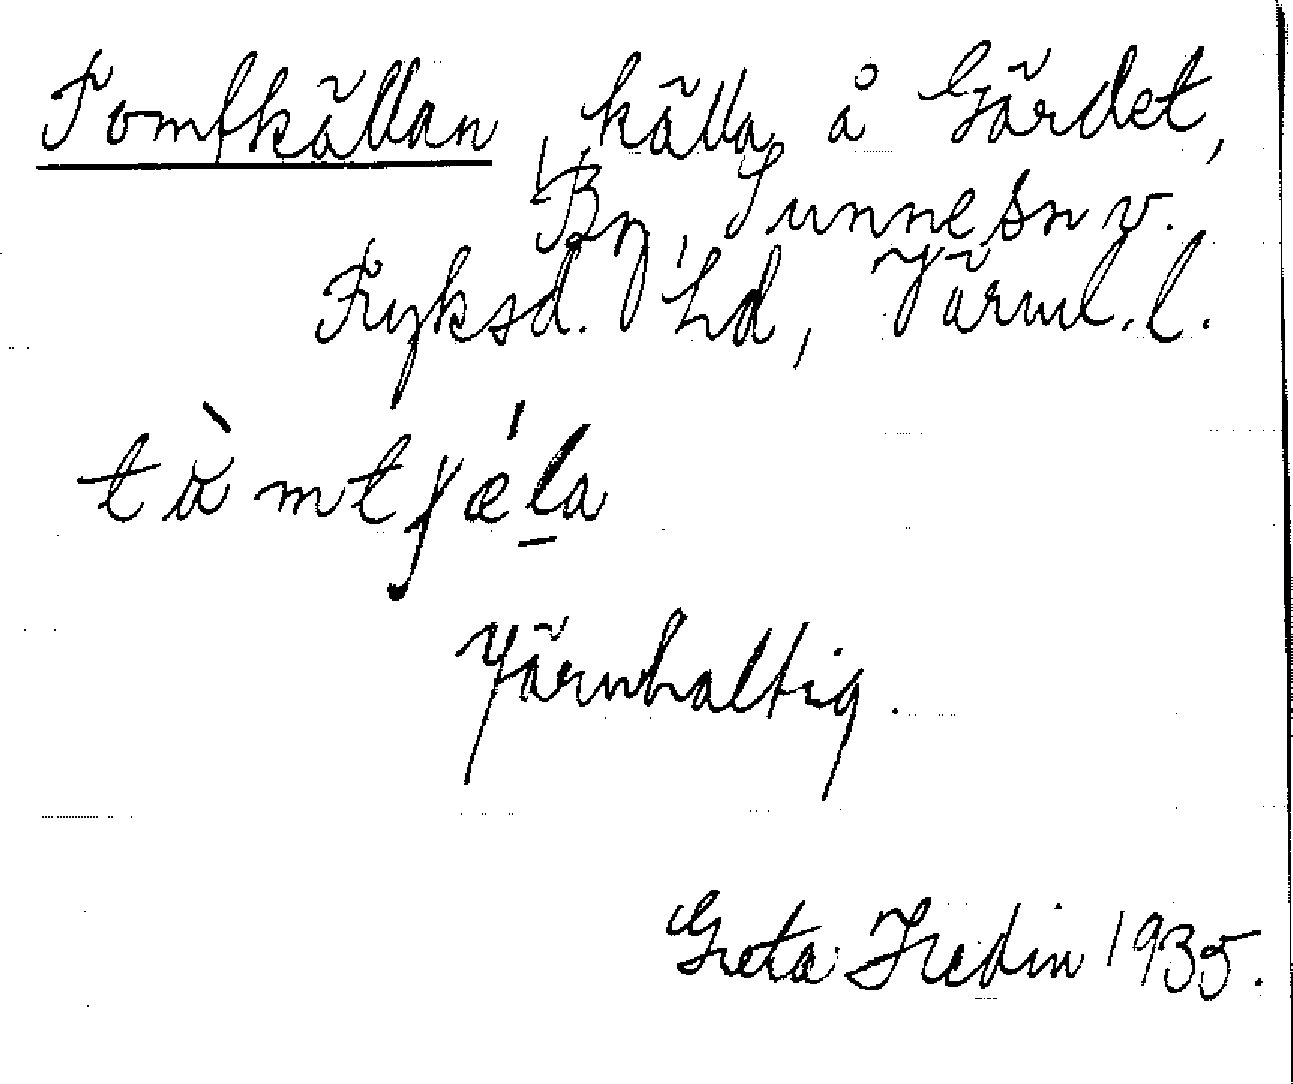 Tomtkällan, källa å Gärdet,
By, Sunne sn v.
Fryksd. hd, Värml. l.
tòmtɟæ´la
Järnhaltig.
Greta Hedin 1935.